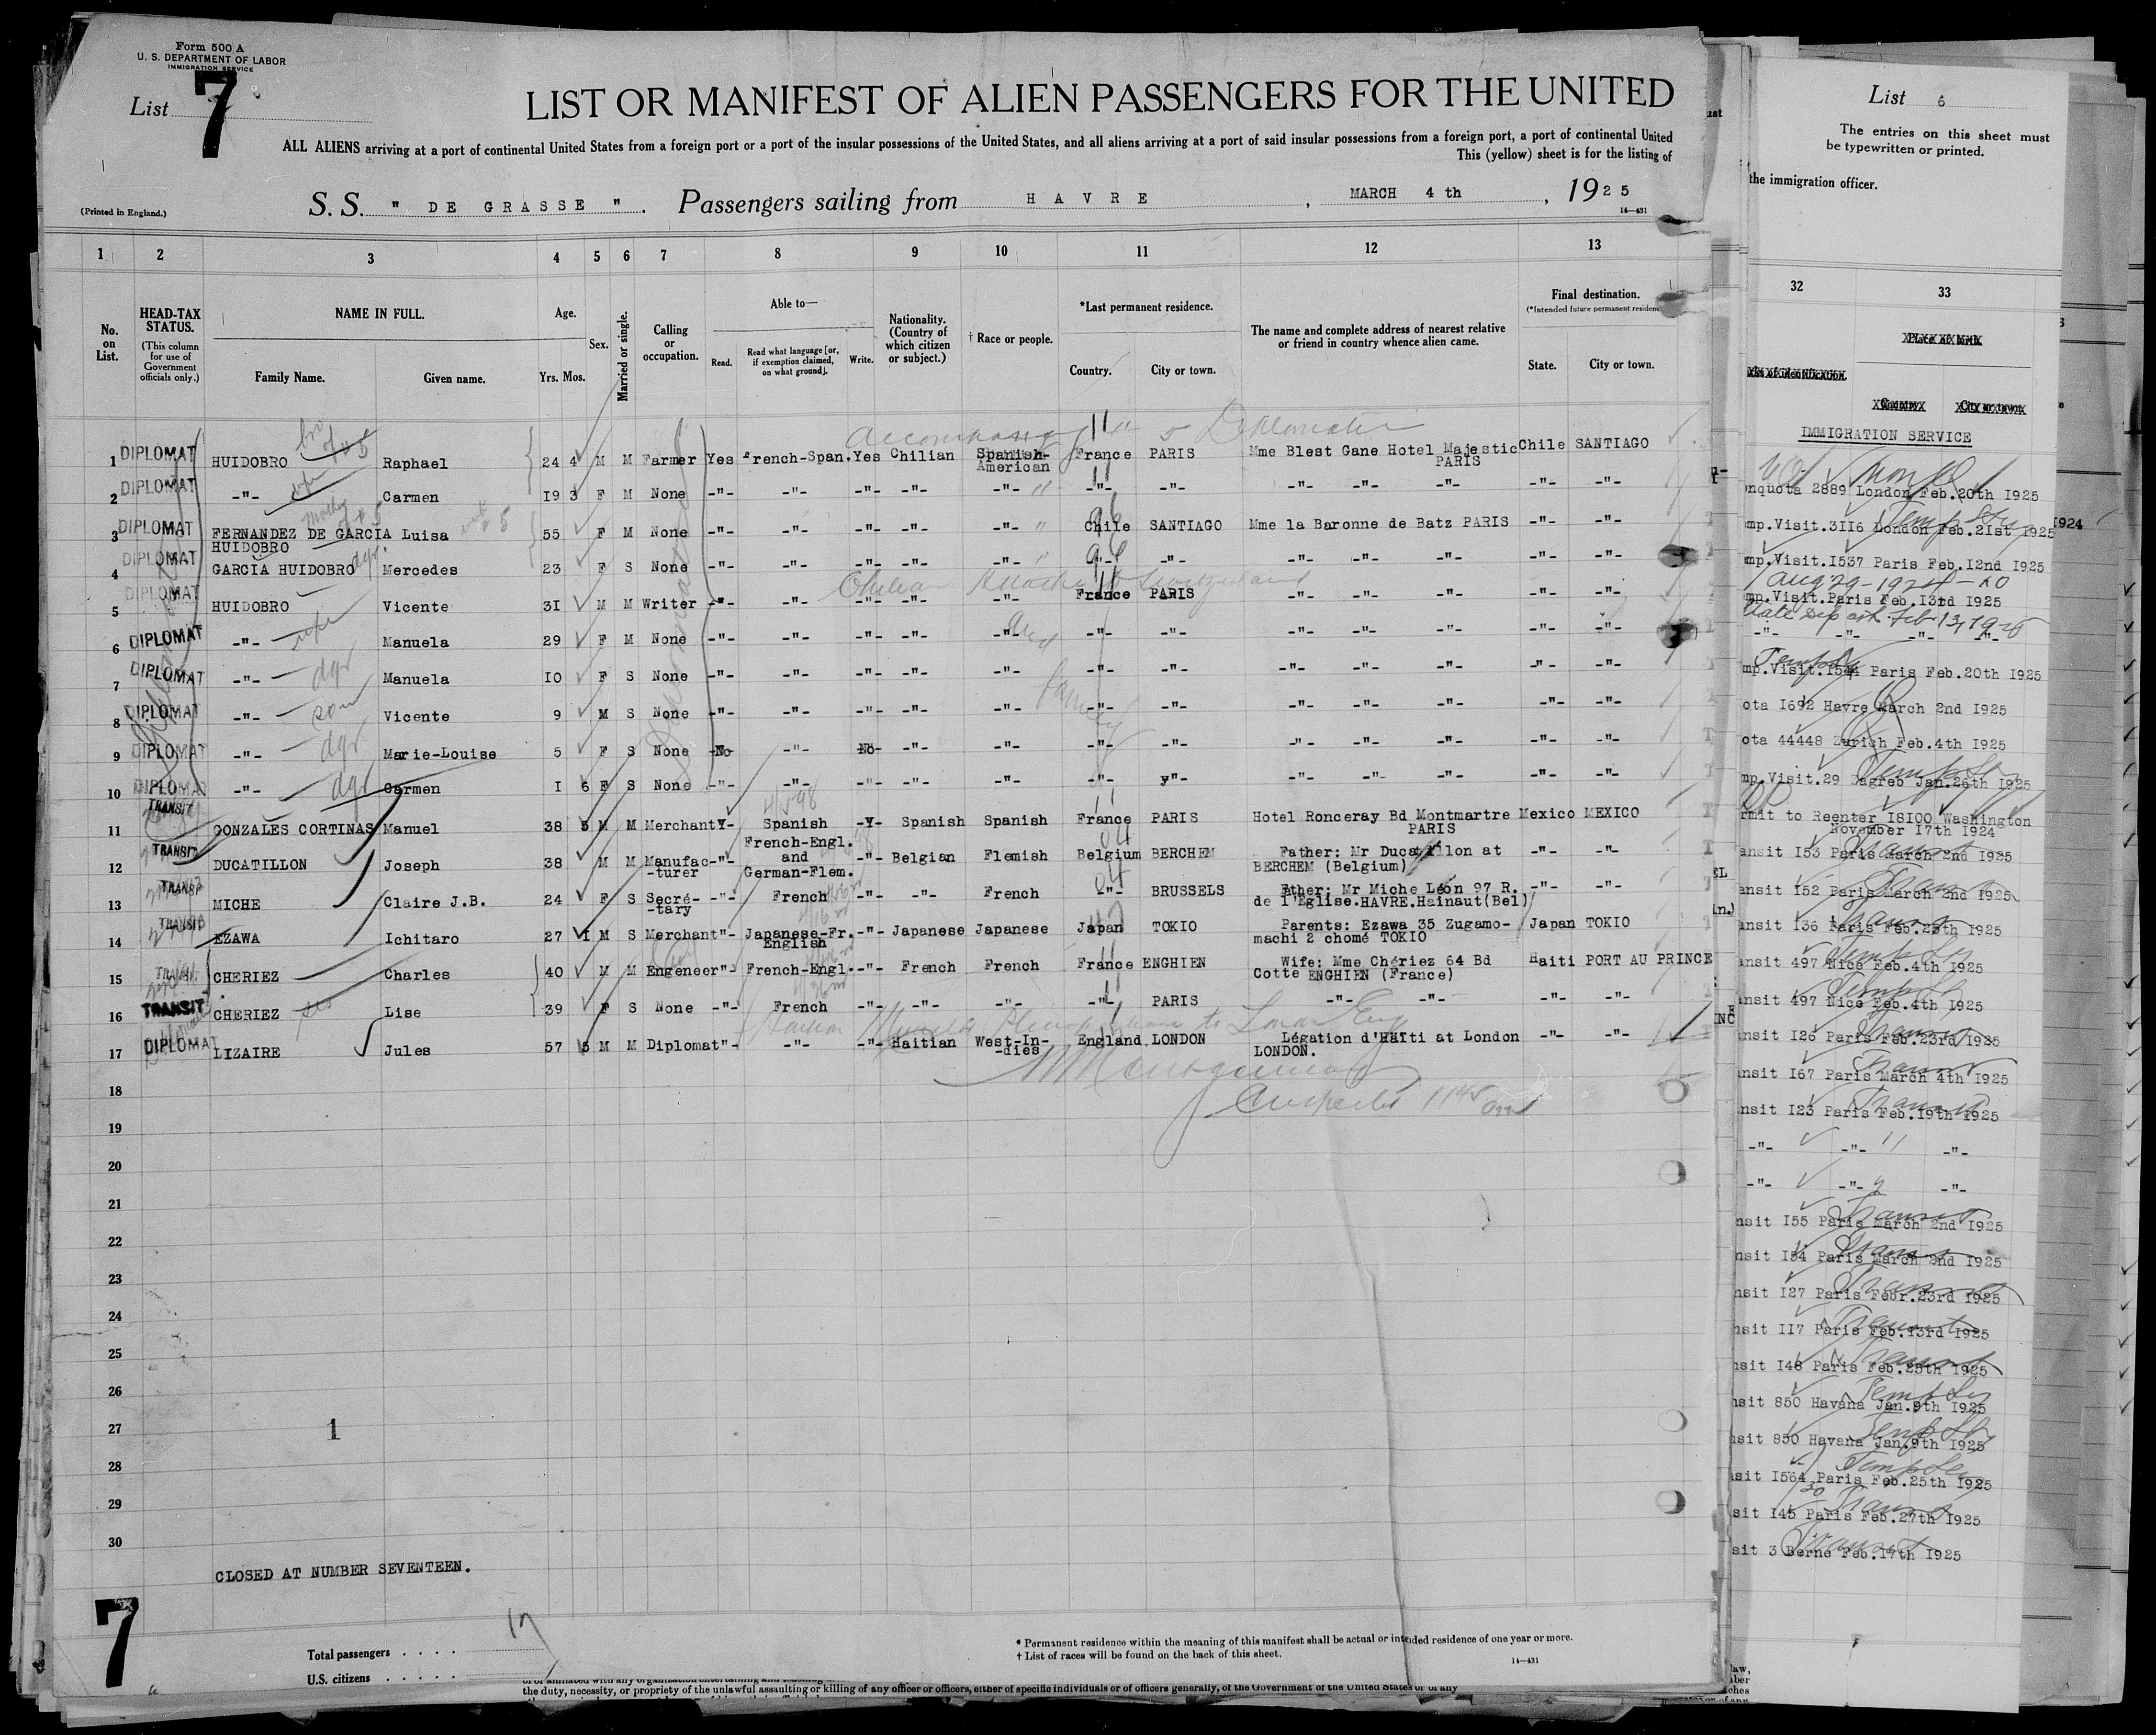 Form 500 A
U. S. DEPARTMENT OF LABOR
IMMIGRATION SERVICE
List 7
LIST OR MANIFEST OF ALIEN PASSENGERS FOR THE UNITED
ALL ALIENS arriving at a port of continental United States from a foreign port or a port of the insular possessions of the United States, and all aliens arriving at a port of said insular possessions from a foreign port, a port of continental United
This (yellow) sheet is for the listing of
(Printed in England.)
S. S. " DE GRASSE ". Passengers sailing from HAVRE, MARCH 4 th, 1925
14—431
1 2 3 4 5 6 7 8 9 10 11 12 13
No. on List.
HEAD-TAX STATUS.
(This column for use of Government officials only.)
NAME IN FULL.
Family Name. Given name.
Age.
Yrs. Mos.
Sex.
Married or single.
Calling or occupation.
Able to—
Read. Read what language [or, if exemption claimed, on what ground]. Write.
Nationality. (Country of which citizen or subject.)
† Race or people.
*Last permanent residence.
Country. City or town.
The name and complete address of nearest relative or friend in country whence alien came.
Final destination.
(*Intended future permanent residence
State. City or town.
1 DIPLOMAT HUIDOBRO Raphael 24 4 M M Farmer Yes French-Span. Yes Chilian Spanish-American France PARIS Mme Blest Gane Hotel Majestic PARIS Chile SANTIAGO
2 DIPLOMAT -"- Carmen 19 3 F M None -"- -"- -"- -"- -"- -"- -"- -"- -"- -"- -"- -"-
3 DIPLOMAT FERNANDEZ DE GARCIA HUIDOBRO Luisa 55 F M None -"- -"- -"- -"- -"- Chile SANTIAGO Mme la Baronne de Batz PARIS -"- -"-
4 DIPLOMAT GARCIA HUIDOBRO dgr. Mercedes 23 F S None -"- -"- -"- -"- -"- -"- -"- -"- -"- -"- -"- -"-
Chilean Attache to Switzerland
5 DIPLOMAT HUIDOBRO Vicente 31 M M Writer -"- -"- -"- -"- -"- France PARIS -"- -"- -"- -"- -"-
6 DIPLOMAT -"- wife Manuela 29 F M None -"- -"- -"- -"- -"- -"- -"- -"- -"- -"- -"- -"-
7 DIPLOMAT -"- dgr Manuela 10 F S None -"- -"- -"- -"- -"- -"- -"- -"- -"- -"- -"- -"-
8 DIPLOMAT -"- son Vicente 9 M S None -"- -"- -"- -"- -"- -"- -"- -"- -"- -"- -"- -"-
9 DIPLOMAT -"- dgr Marie-Louise 5 F S None -No- -"- -No- -"- -"- -"- -"- -"- -"- -"- -"- -"-
10 DIPLOMA -"- dgr Carmen 1 6 F S None -"- -"- -"- -"- -"- -"- -"- -"- -"- -"- -"- -"-
11 TRANSIT GONZALES CORTINAS Manuel 38 5 M M Merchant Y- Spanish -Y- Spanish Spanish France PARIS Hotel Ronceray Bd Montmartre PARIS Mexico MEXICO
12 TRANSIT DUCATILLON Joseph 38 M M Manufac-turer -"- French-Engl. and German-Flem. -"- Belgian Flemish Belgium BERCHEM Father: Mr Ducatillon at BERCHEM (Belgium) -"- -"-
13 TRANSIT MICHE Claire J.B. 24 F S Secré-tary -"- French -"- -"- French -"- BRUSSELS Father: Mr Miche Léon 97 R. de l'Eglise.HAVRE.Hainaut(Bel) -"- -"-
14 TRANSIT EZAWA Ichitaro 27 1 M S Merchant "- Japanese-Fr. English -"- Japanese Japanese Japan TOKIO Parents: Ezawa 35 Zugamo-machi 2 chomé TOKIO Japan TOKIO
15 TRANSIT CHERIEZ Charles 40 M M Engeneer "- French-Engl. -"- French French France ENGHIEN Wife: Mme Chériez 64 Bd Cotte ENGHIEN (France) Haiti PORT AU PRINCE
16 TRANSIT CHERIEZ sis Lise 39 F S None -"- French -"- -"- -"- -"- PARIS -"- -"- -"- -"-
17 DIPLOMAT LIZAIRE Jules 57 5 M M Diplomat "- -"- -"- Haitian West-In-dies England LONDON Légation d'Haïti at London LONDON. -"- -"-
18
19
20
21
22
23
24
25
26
27 1
28
29
30
CLOSED AT NUMBER SEVENTEEN.
7
Total passengers . . . . 17
U.S. citizens . . . . .
* Permanent residence within the meaning of this manifest shall be actual or intended residence of one year or more.
† List of races will be found on the back of this sheet.
14—431
the duty, necessity, or propriety of the unlawful assaulting or killing of any officer or officers, either of specific individuals or of officers generally, of the Government of the United States or of any
List 6
The entries on this sheet must
be typewritten or printed.
the immigration officer.
32 33
Place of birth
Country City or town
IMMIGRATION SERVICE
nquota 2889 London Feb.20th 1925
mp.Visit.3116 London Feb.21st 1925
1924
mp.Visit.1537 Paris Feb.12nd 1925
Aug 29-1924
mp.Visit.Paris Feb.13rd 1925
-"- -"- -"- -"-
mp.Visit.1544 Paris Feb.20th 1925
ota 1692 Havre March 2nd 1925
ota 44448 Zurich Feb.4th 1925
mp.Visit.29 Dagreb Jan.26th 1925
rmit to Reenter 18100 Washington
November 17th 1924
ansit 153 Paris March 2nd 1925
ansit 152 Paris March 2nd 1925
ansit 136 Paris Feb.25th 1925
ansit 497 Nice Feb.4th 1925
ansit 497 Nice Feb.4th 1925
ansit 126 Paris Feb.23rd 1925
ansit 167 Paris March 4th 1925
nsit 123 Paris Feb.19th 1925
-"- -"- -"-
-"- -"- -"-
nsit 155 Paris March 2nd 1925
nsit 154 Paris March 2nd 1925
nsit 127 Paris Febr.23rd 1925
nsit 117 Paris Feb.13rd 1925
nsit 148 Paris Feb.25th 1925
nsit 850 Havana Jan.9th 1925
nsit 850 Havana Jan.9th 1925
sit 1564 Paris Feb.25th 1925
sit 145 Paris Feb.27th 1925
sit 3 Berne Feb.17th 1925